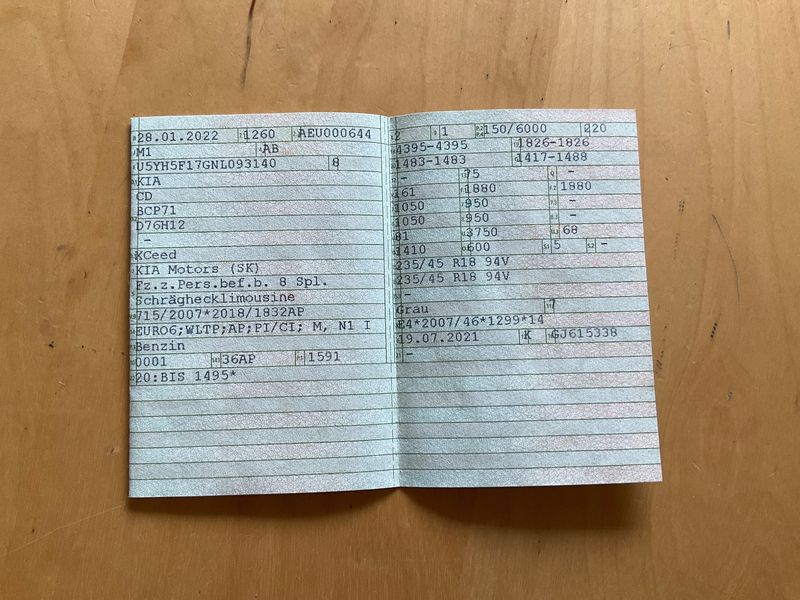 28.01.2022 1260 AEU000644
M1 AB
U5YH5F17GNL093140 8
KIA
CD
BCP71
D76H12
-
XCeed
KIA Motors (SK)
Fz.z.Pers.bef.b. 8 Spl.
Schräghecklimousine
715/2007*2018/1832AP
EURO6;WLTP;AP;PI/CI; M, N1 I
Benzin
0001 36AP 1591
20:BIS 1495*
2 1 150/6000 220
4395-4395 1826-1826
1483-1483 1417-1488
- 75 -
61 1880 1880
1050 950 -
1050 950 -
81 3750 68
1410 600 5 -
235/45 R18 94V
235/45 R18 94V
-
Grau 7
E4*2007/46*1299*14
19.07.2021 K GJ615338
-